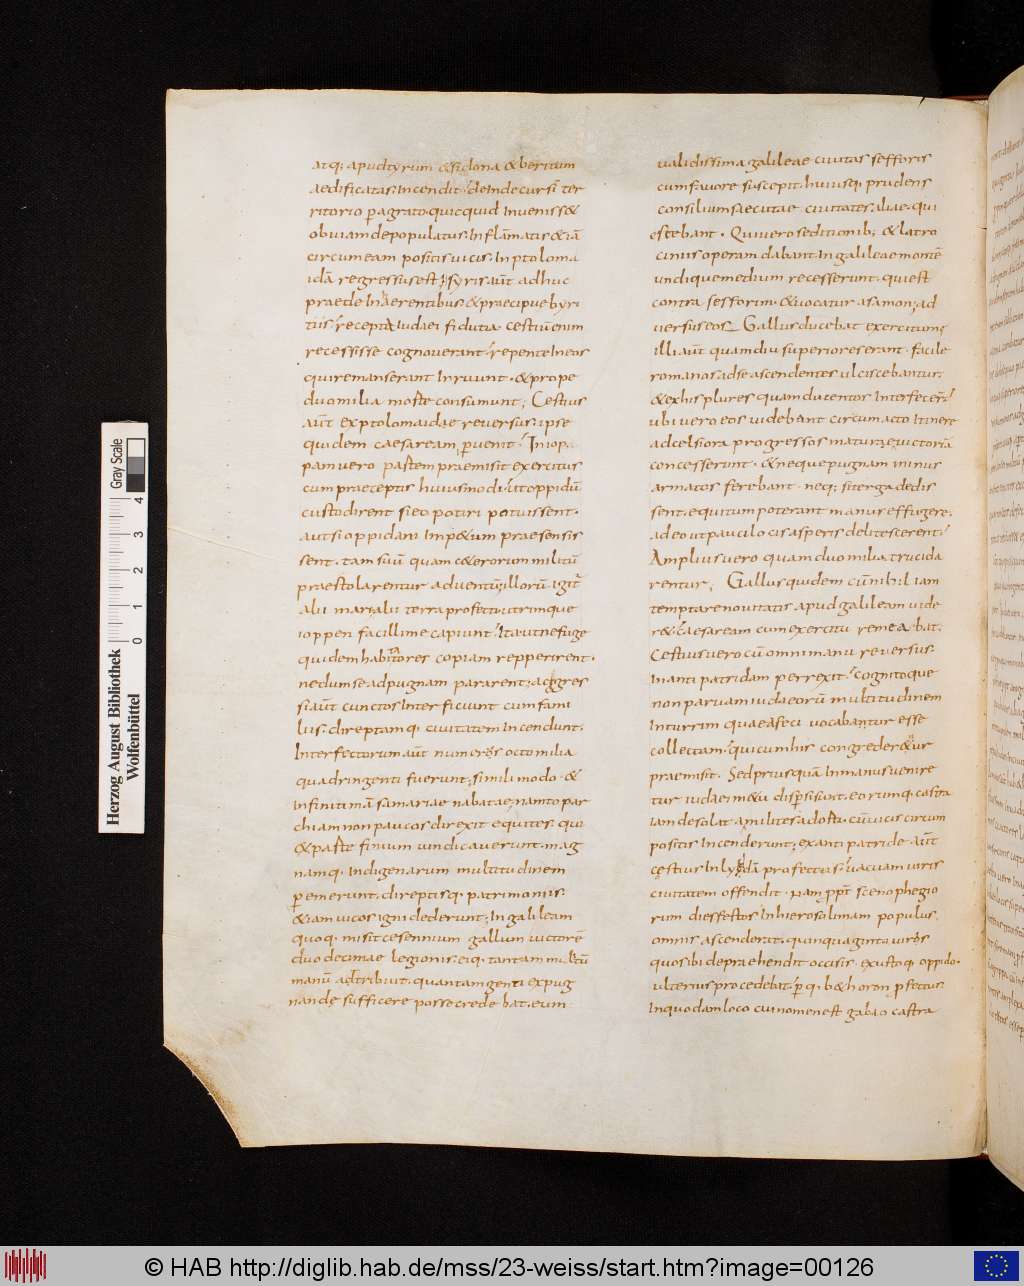 atq; apud tyrum &sidona &beritum
aedificatas. Incendit. deinde cursi ter
ritorio pagrato quicquid Inueniss&
obuiam depopulatus. Inflāmatis &iā
circum eam positis uicis. In ptoloma
idā regressus est syris aūt adhuc
praede Inhaerentibus. &praecipue byri
tiis. recepta Iudaei fidutia cestiū enim
recessisse cognouerant. repente In eos
qui remanserant Irruunt. &prope
duo milia moste consumunt; Cestius
aūt ex ptolomaidae reuersus. ipse
quidem caesaream puenit. In iop
pam uero pastem praemisit exercitus
cum praeceptis huiusmodi. ut oppidū
custodirent si eo potiri potuissent.
aut si oppidani Imp&um praesensis
sent. tam suū quam c&erorum militū
praestolarentur aduentū; illorū. igit
alii mari; alii terra profecti utrimque
ioppen facillime capiunt. Ita ut ne fuge
quidem habitatores copiam repperirent.
nedum se ad pugnam pararent; adgres
si aūt cunctos Interficiunt cum fami
liis. direptamq; ciuitatem Incendunt.
Interfectorum aūt numerus octo milia
quadringenti fuerunt; simili modo. &
Infinitimā samariae nabatae; nam toparchiam non paucos direxit equites. qui
&paste finium uindicauerunt. mag
namq; Indigenarum multitudinem
pemerunt. direptisq; patrimoniis.
&iam uicos igni dederunt; In galileam
quoq; misit cesennium gallum uictorē
duodecimae legionis. eiq; tantam multū
manū adtribuit. quantam genti expug
nande sufficere posse credebat. eum
ualidissima galileae ciuitas sefforis
cum fauore suscepit. huiusq; prudens
consilium saecutae ciuitates. aliae. qui
estebant. Qui uero seditionib; &latro
ciniis operam dabant. In galileae montē
undique medium recesserunt. qui est
contra sefforim. &uocatur asamon; ad
uersus eos Gallus ducebat exercitum;
illi aūt quamdiu superiores erant. facile
romanos ad se ascendentes ulciscebantur;
&ex his plures quam ducentos Interfecert
ubi uero eos uidebant circumacto Itinere
ad celsiora progressos mature; euictoriā
concesserunt. &neque pugnam minus
armatos ferebant. neq; si terga dedis
sent. equitum poterant manus effugere;
adeo ut pauci locis asperis delitescerent.
Amplius uero quam duo milia trucida
rentur; Gallus quidem cū nihil iam
temptare nouitatis apud galileam uide
r&. caesaream cum exercitu remeabat.
Cestius uero cū omni manu reuersus.
In antipatridam perrexit. cognitoque
non paruam iudaeorū multitudinem
In turrim quae aseci uocabantur esse
collectam. qui cum his congreder&ur
praemisit. Sed prius quā In manus uenire
tur iudaei m&u dispsi sunt. eorumq; castra
iam desolata milites adostu. cū uicis circum
positis Incenderunt; ex antipatride aūt
cestius In lyddā profectus. uacuam uiris
ciuitatem offendit. nam ppt scenophegio
rum dies festos In hierosolimam populus
omnis ascenderat. quinquaginta uiros
quos ibi depraehendit occisis. exustoq; oppido.
ulterius procedebat. pq; b&horon pfectus
In quodam loco cui nomen est gabao castra
Herzog August Bibliothek
Wolfenbüttel
0 1 2 3 4
Gray Scale
© HAB http://diglib.hab.de/mss/23-weiss/start.htm?image=00126